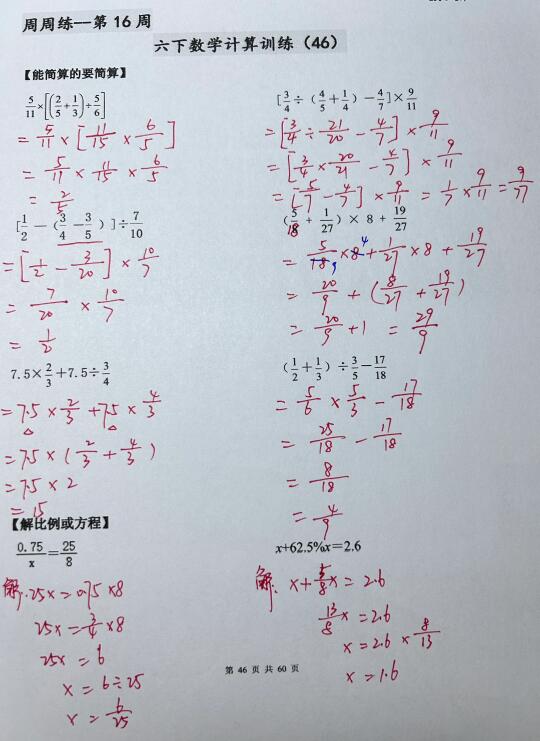 周周练--第 16 周
六下数学计算训练（46）
【能简算的要简算】
5/11×[(2/5+1/3)÷5/6]
=5/11×[11/15×6/5]
=5/11×11/15×6/5
=2/5
[3/4÷（4/5+1/4）-4/7]×9/11
=[3/4÷21/20-4/7]×9/11
=[3/4×20/21-4/7]×9/11
=[5/7-4/7]×9/11=1/7×9/11=9/77
[1/2-（3/4-3/5）]÷7/10
=[1/2-3/20]×10/7
=7/20×10/7
=1/2
（5/18+1/27）×8+19/27
=5/18×8+1/27×8+19/27
=20/9+(8/27+19/27)
=20/9+1=29/9
7.5×2/3+7.5÷3/4
=7.5×2/3+7.5×4/3
=7.5×(2/3+4/3)
=7.5×2
=15
（1/2+1/3）÷3/5-17/18
=5/6×5/3-17/18
=25/18-17/18
=8/18
=4/9
【解比例或方程】
0.75/x=25/8
解:25x=0.75×8
25x=3/4×8
25x=6
x=6÷25
x=6/25
x+62.5%x=2.6
解:x+5/8x=2.6
13/8x=2.6
x=2.6×8/13
x=1.6
第 46 页 共 60 页